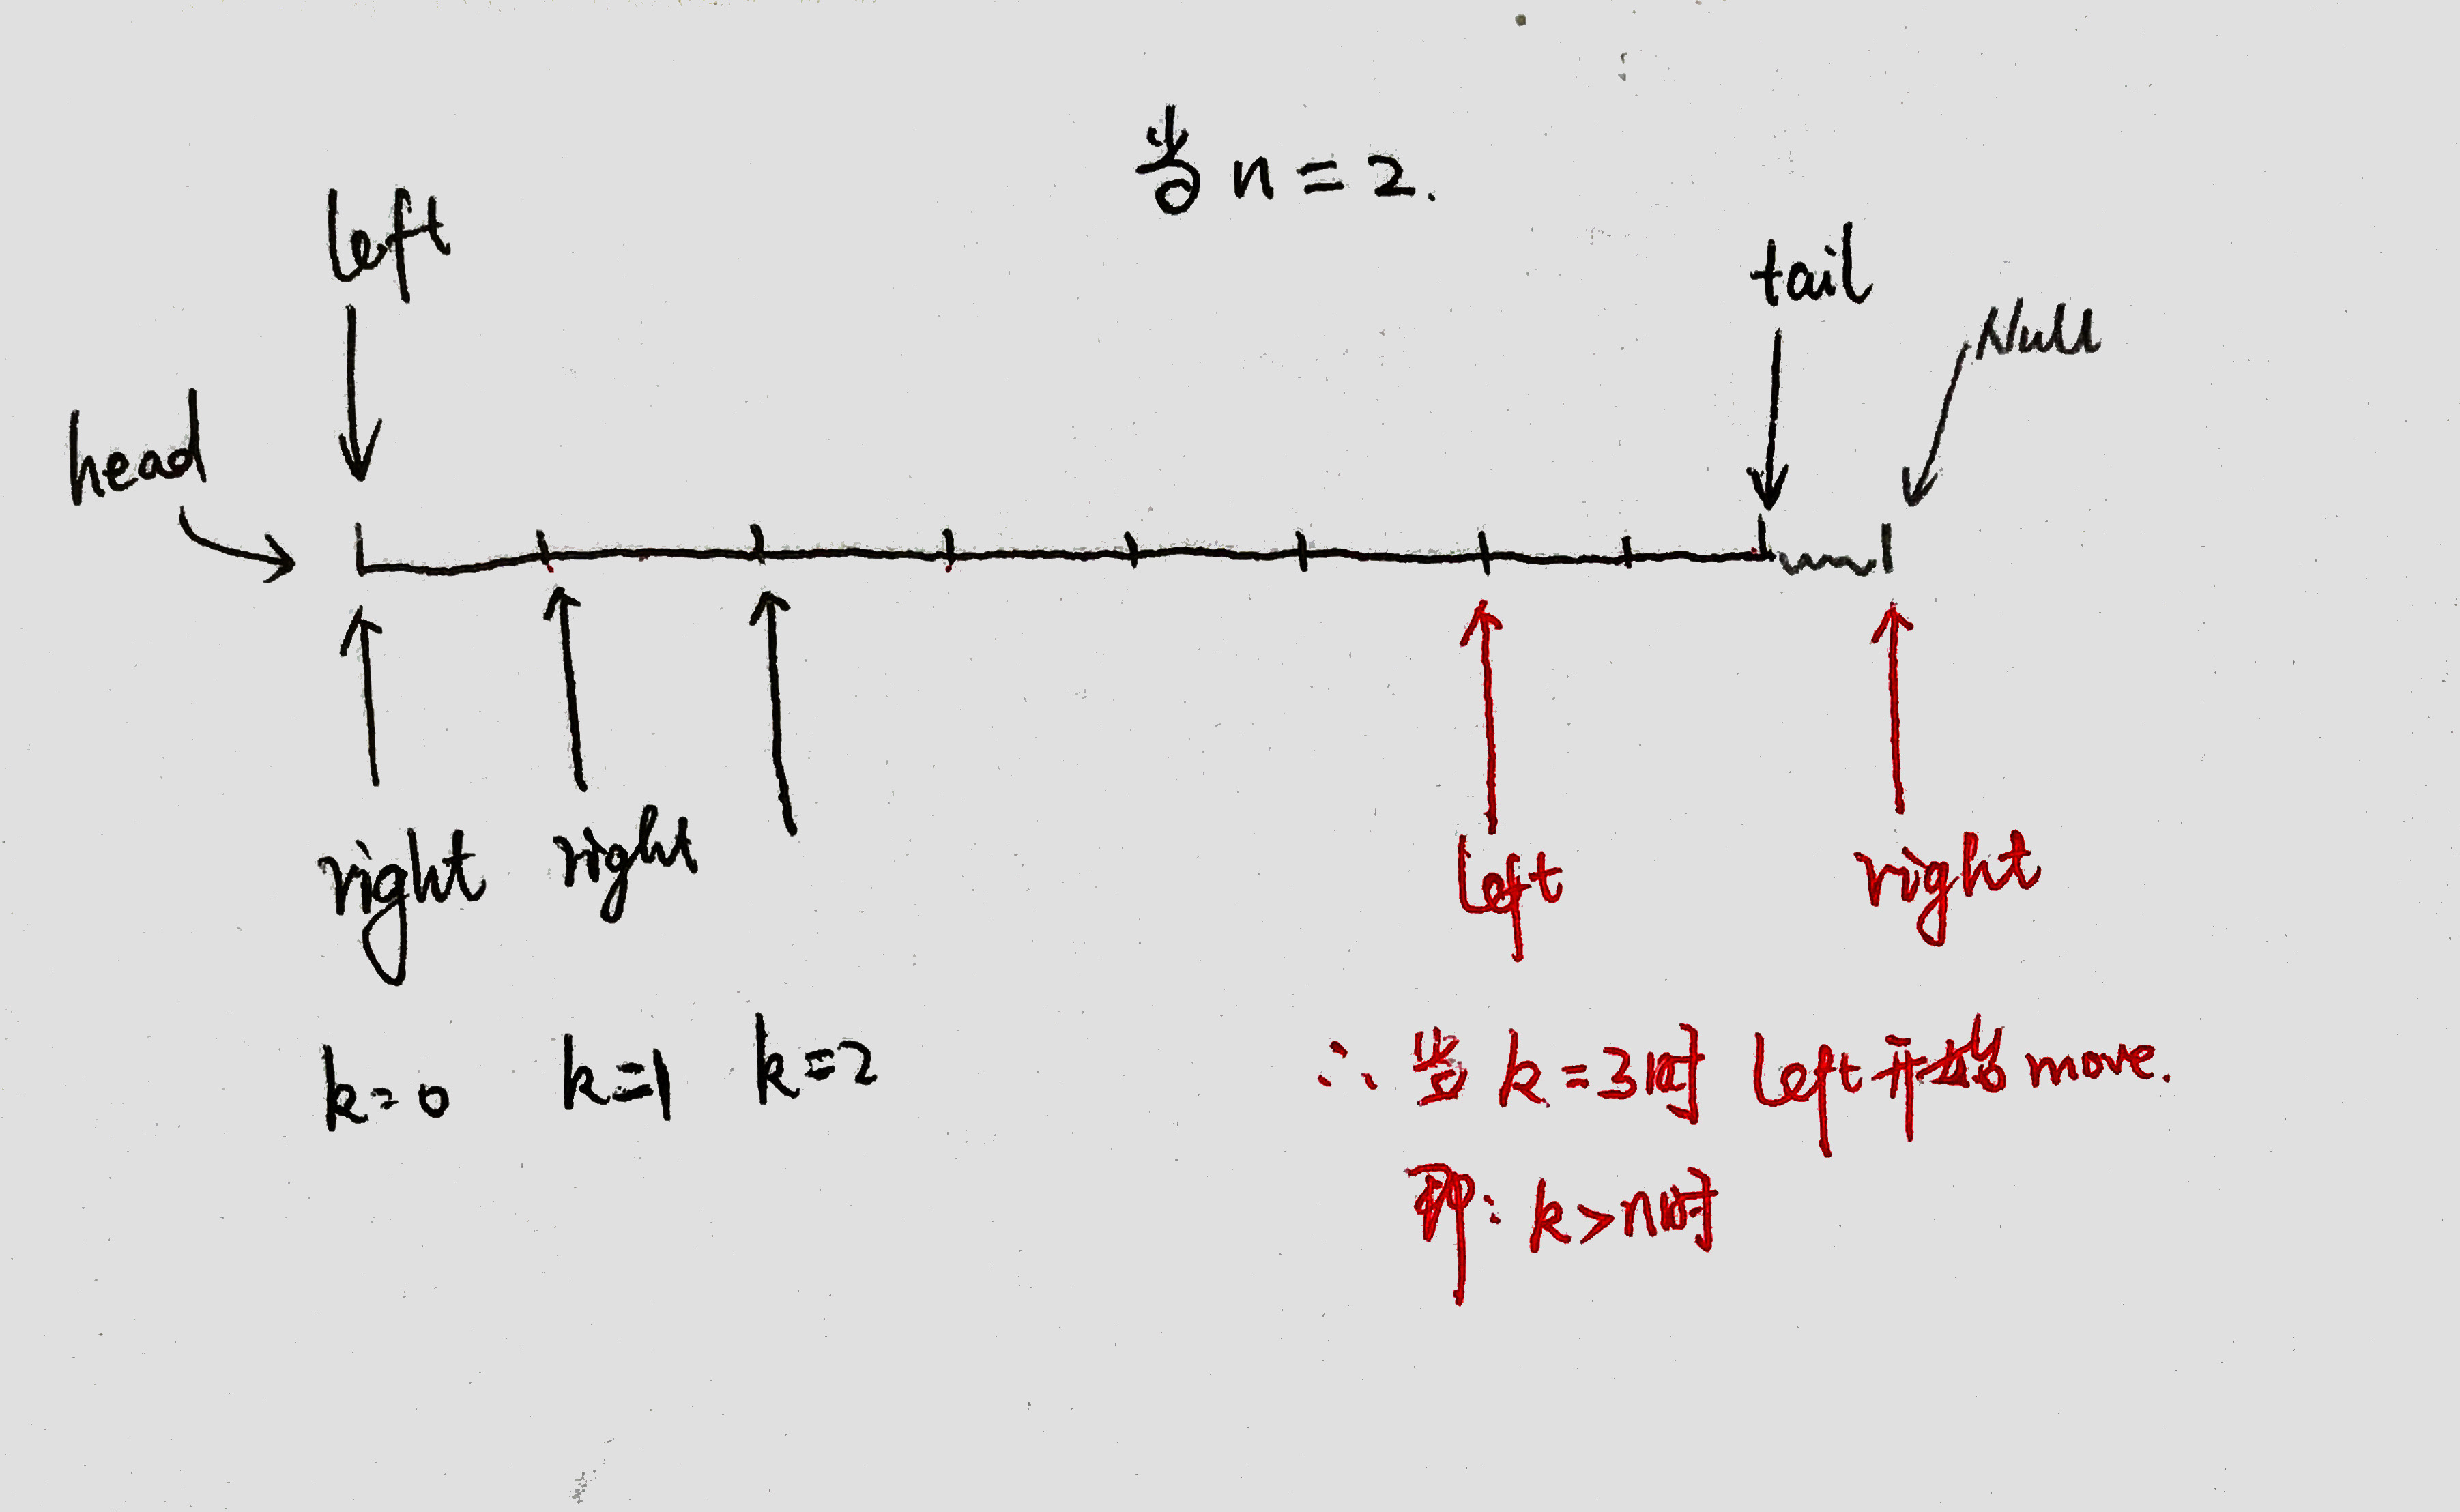 当 n = 2.
left
tail
Null
head
right right
left
right
k=0 k=1 k=2
∴ 当 k=3时 left 开始 move.
即: k>n时